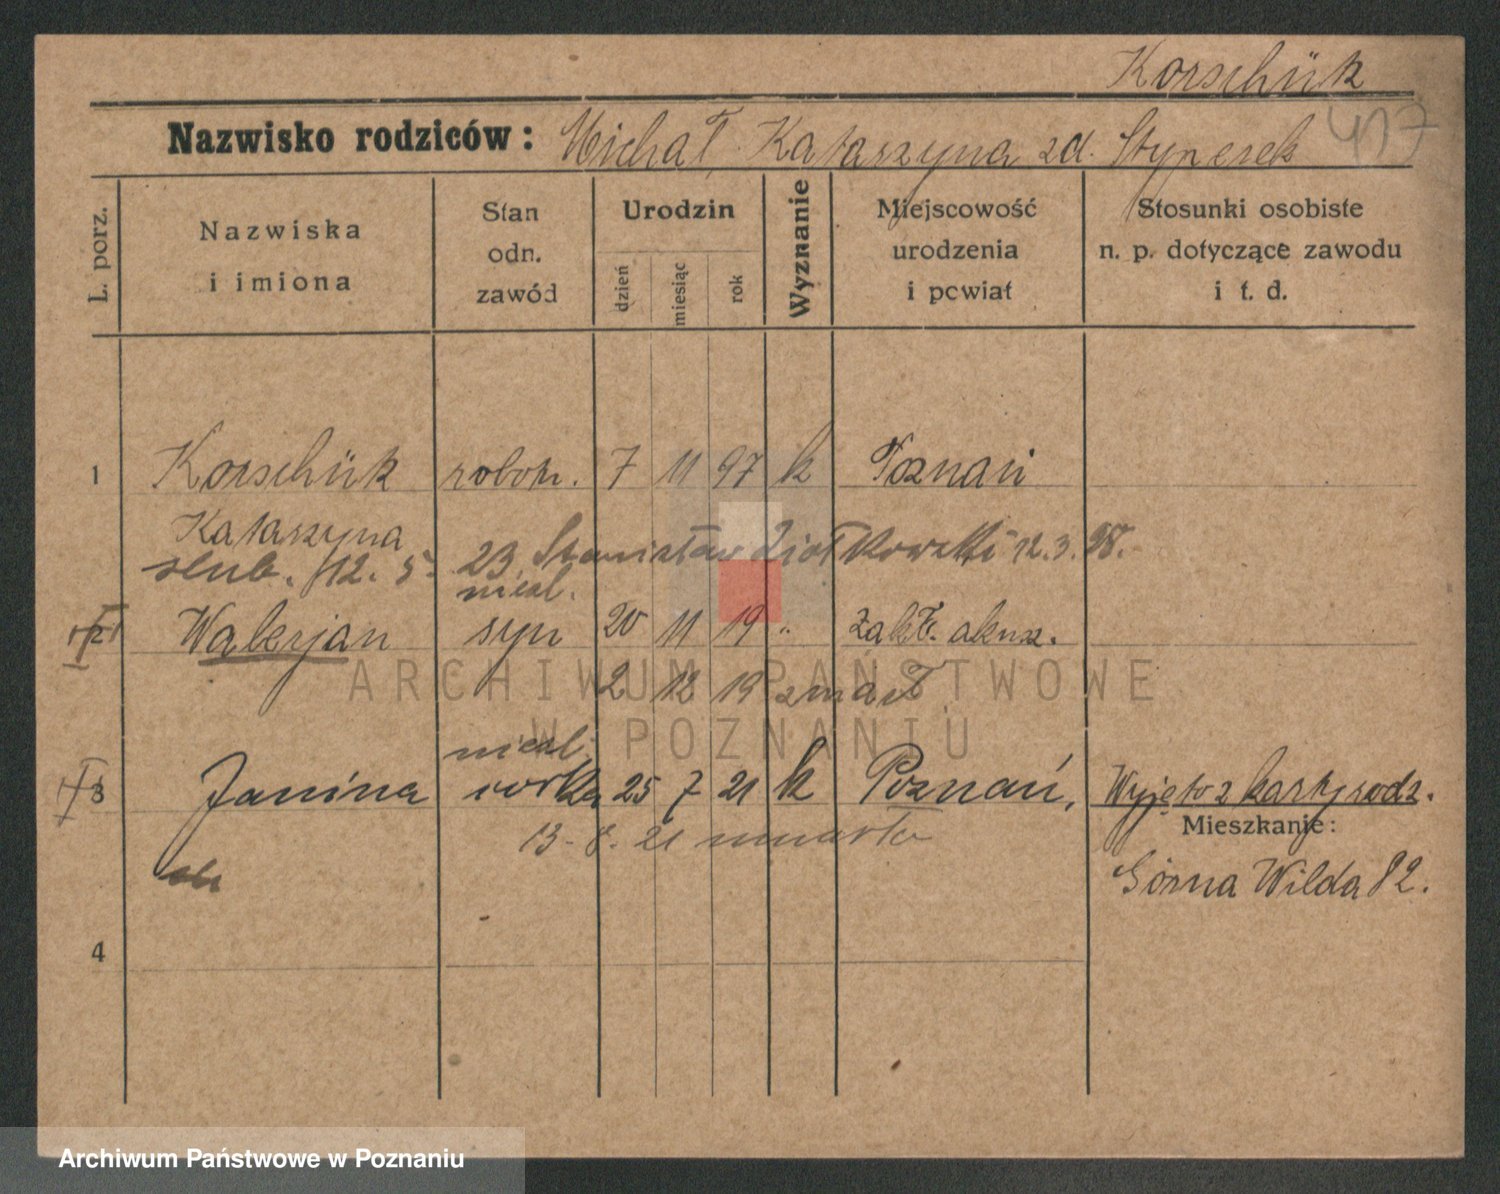 Korschük
417
Nazwisko rodziców: Michał Katarzyna zd. Styperek
L. porz.
Nazwiska
i imiona
Stan
odn.
zawód
Urodzin
dzień
miesiąc
rok
Wyznanie
Miejscowość
urodzenia
i powiat
Stosunki osobiste
n. p. dotyczące zawodu
i t. d.
1 Korschük robotn. 7 11 97 k Poznań
Katarzyna
ślub. 12. 5. 23 Stanisław Ziółkowski 12.3.98.
nieśl.
2 Walerjan syn 20 11 19 " Zakł. akusz.
2 12 19 zmarł
nieśl.
3 Janina córka 25 7 21 k Poznań, Wyjęto z karty rodz.
13. 8. 21 umarła
Mieszkanie:
Górna Wilda 82.
4
ARCHIWUM PAŃSTWOWE
W POZNANIU
Archiwum Państwowe w Poznaniu